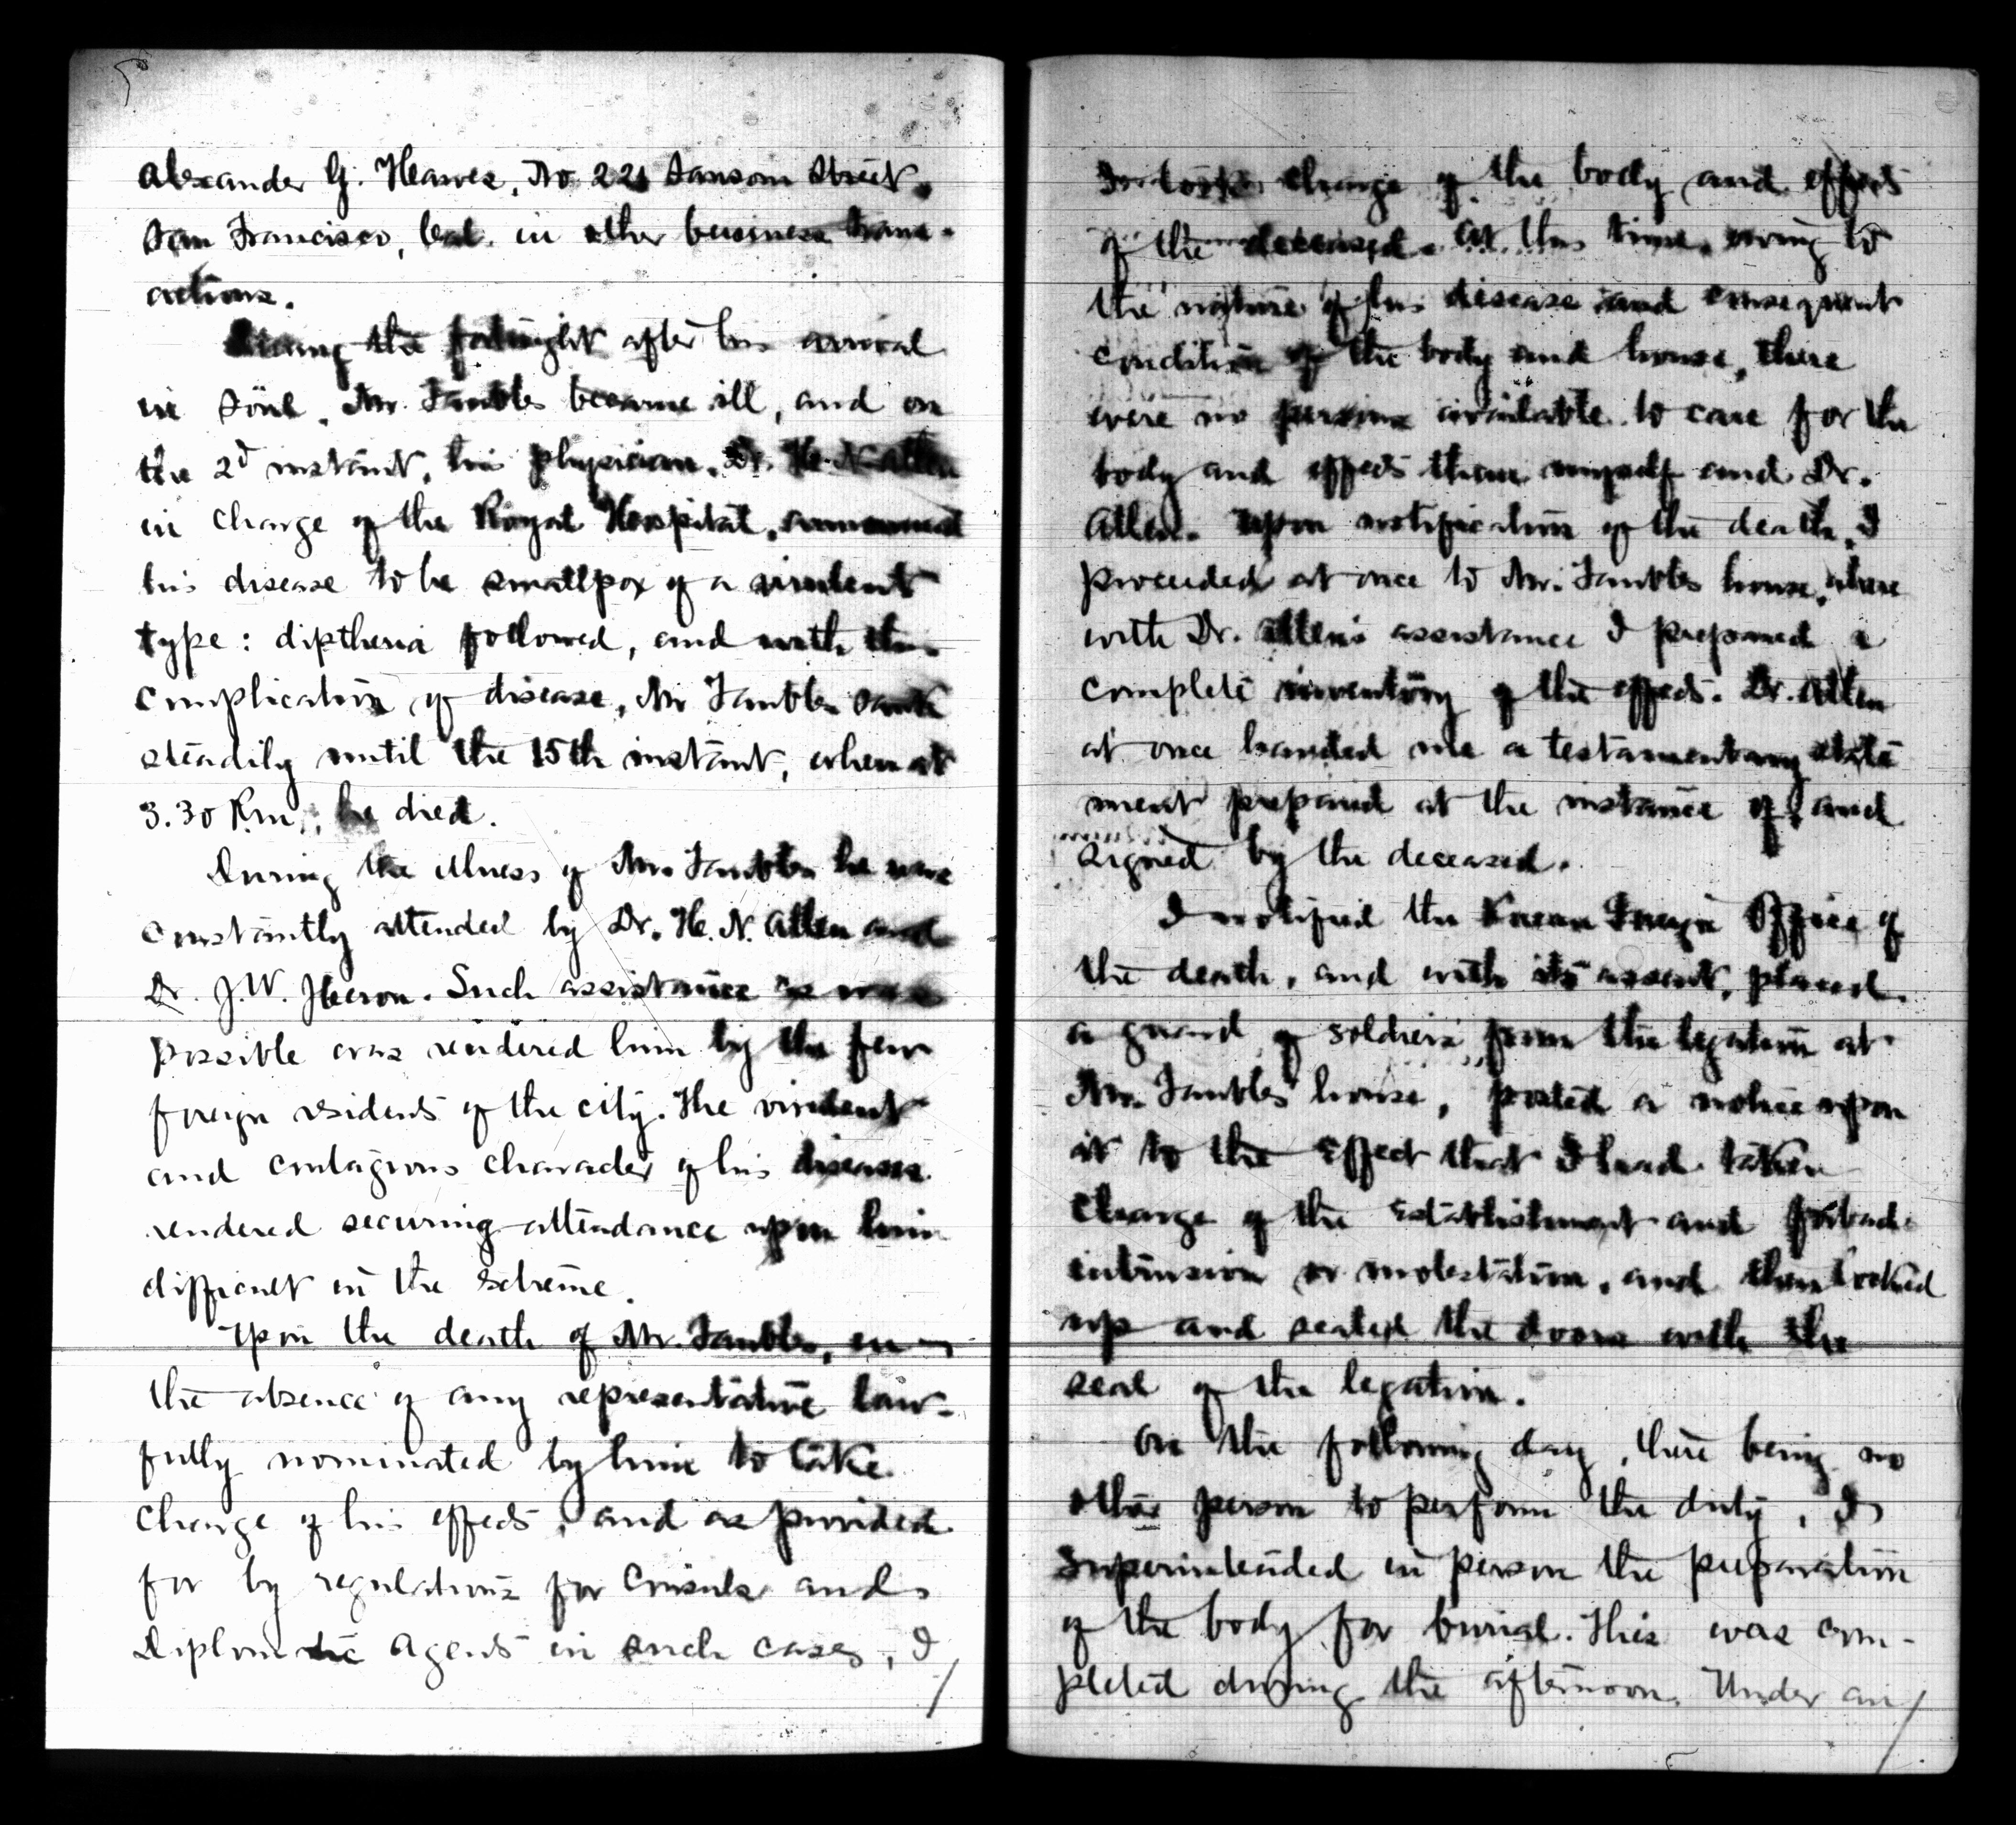 Alexander G. Hawes, No 221 Sansom Street,
San Francisco, Cal. in other business trans-
actions.
During the fortnight after his arrival
in Söul, Mr. Taubles became ill, and on
the 2d instant, his physician, Dr. H. N. Allen
in charge of the Royal Hospital, announced
his disease to be smallpox of a virulent
type: diptheria followed, and with this
complication of disease, Mr Taubles sank
steadily until the 15th instant, when at
3.30 P.m., he died.
During the illness of Mr. Taubles he was
constantly attended by Dr. H. N. Allen and
Dr. J. W. Heron. Such assistance as was
possible was rendered him by the few
foreign residents of the city. The virulent
and contagious character of his disease
rendered securing attendance upon him
difficult in the extreme.
Upon the death of Mr. Taubles, in
the absence of any representative law-
fully nominated by him to take
charge of his effects, and as provided
for by regulations for Consuls and
Diplomatic Agents in such cases, I
took charge of the body and effects
of the deceased. At this time, owing to
the nature of his disease and consequent
condition of the body and house, there
were no persons available to care for the
body and effects than myself and Dr.
Allen. Upon notification of the death, I
proceeded at once to Mr. Taubles house, where
with Dr. Allen's assistance I prepared a
complete inventory of the effects. Dr. Allen
at once handed me a testamentary state
ment prepared at the instance of, and
signed by the deceased.
I notified the Korean Foreign Office of
the death, and with its assent, placed
a guard of soldiers from the legation at
Mr. Taubles' house, posted a notice upon
it to the effect that I had taken
charge of the establishment and forbade
intrusion or molestation, and then locked
up and sealed the doors with the
seal of the legation.
On the following day, there being no
other person to perform the duty, I
superintended in person the preparation
of the body for burial. This was com-
pleted during the afternoon. Under an